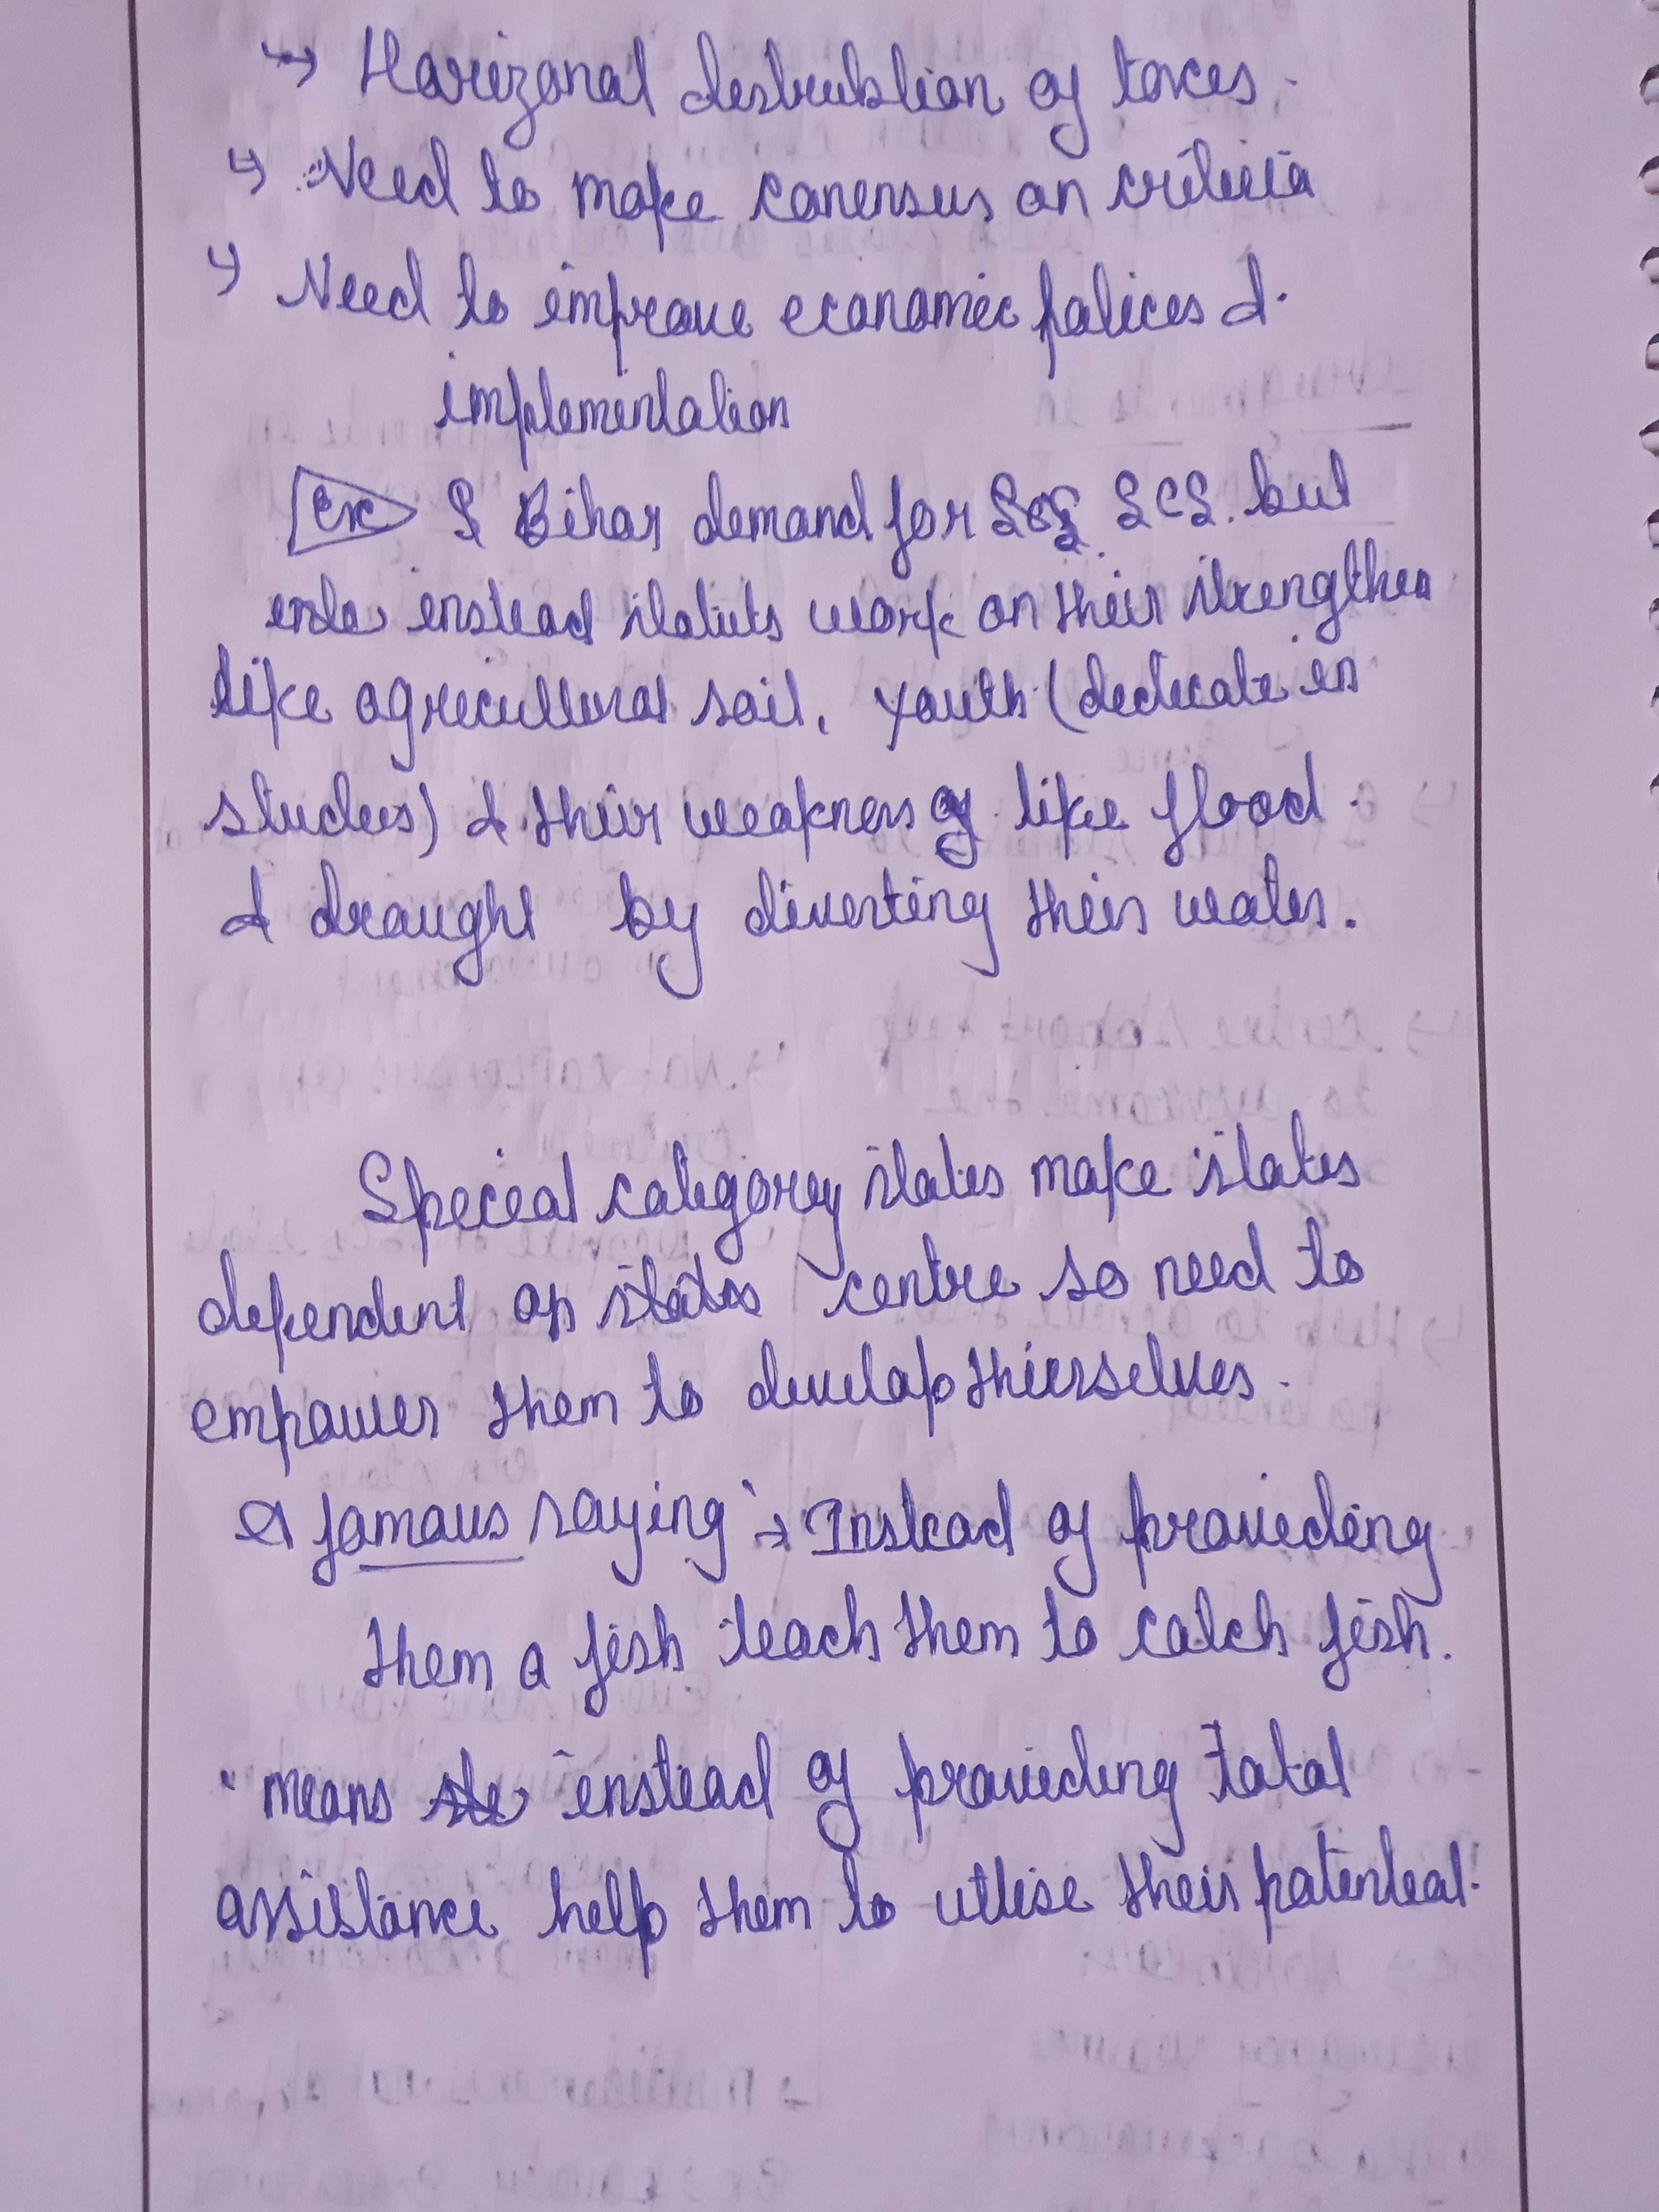 ↳ Harizonal destribution of taxes.
↳ Need to make concensus on criteria
↳ Need to improve economic polices &
implementation
Ex Bihar demand for SCS. but
instead states work on their strengthen
like agricultural soil, youth (dedicate in
studies) & their weakness like flood
& draught by diverting their water.
Special category states make states
dependent on centre so need to
empower them to develop theirselves.
A famous saying → Instead of providing
them a fish teach them to catch fish.
means instead of providing total
assistance help them to utlise their potential.